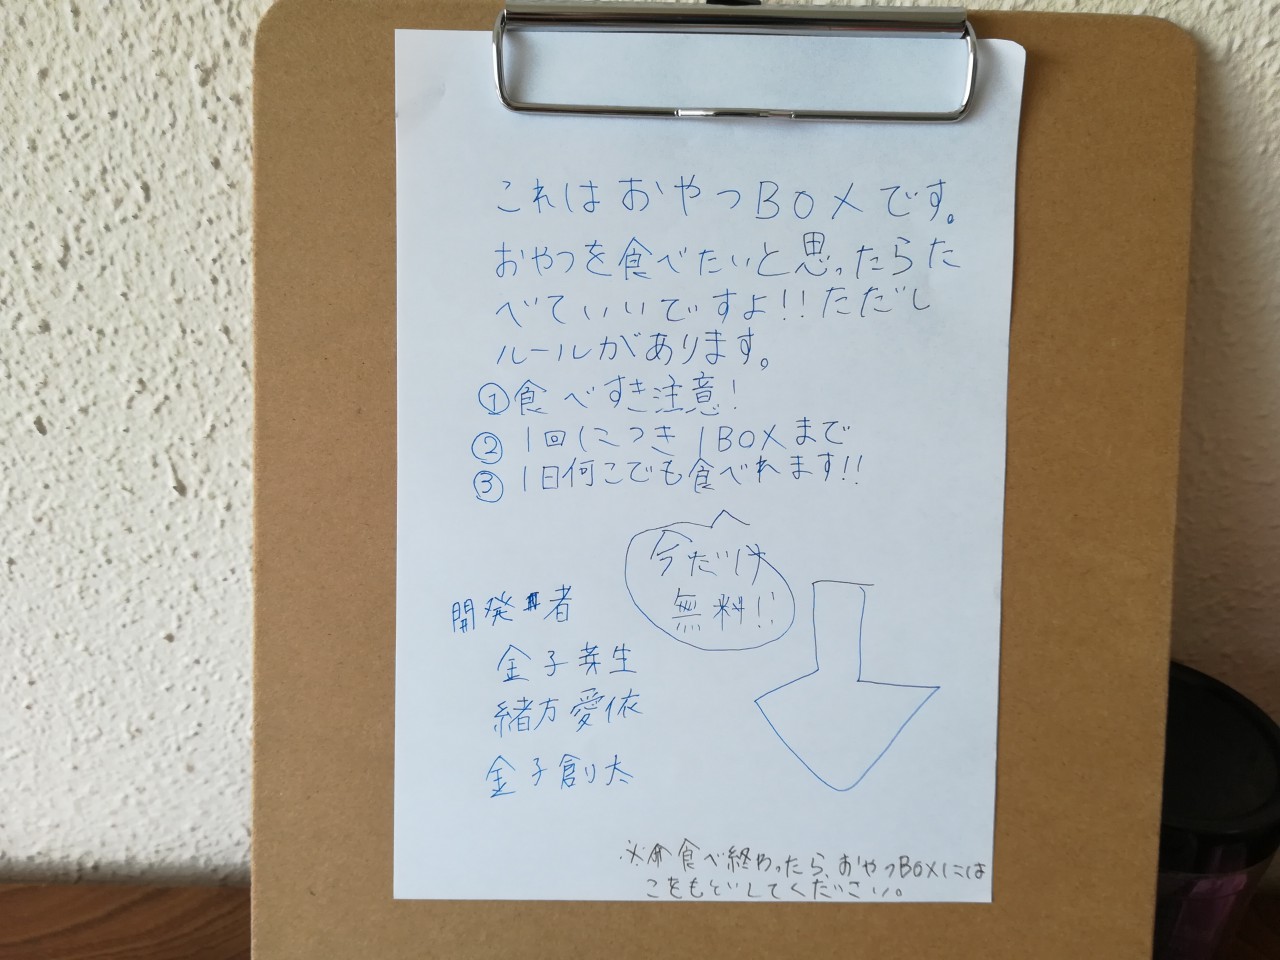 これはおやつBOXです。
おやつを食べたいと思ったらた
べていいですよ!!ただし
ルールがあります。
①食べすき注意!
②1回につき1BOXまで
③1日何こでも食べれます!!
今だけ
無料!!
開発者
金子芽生
緒方愛依
金子創太
※食べ終わったら、おやつBOXには
こをもどしてください。